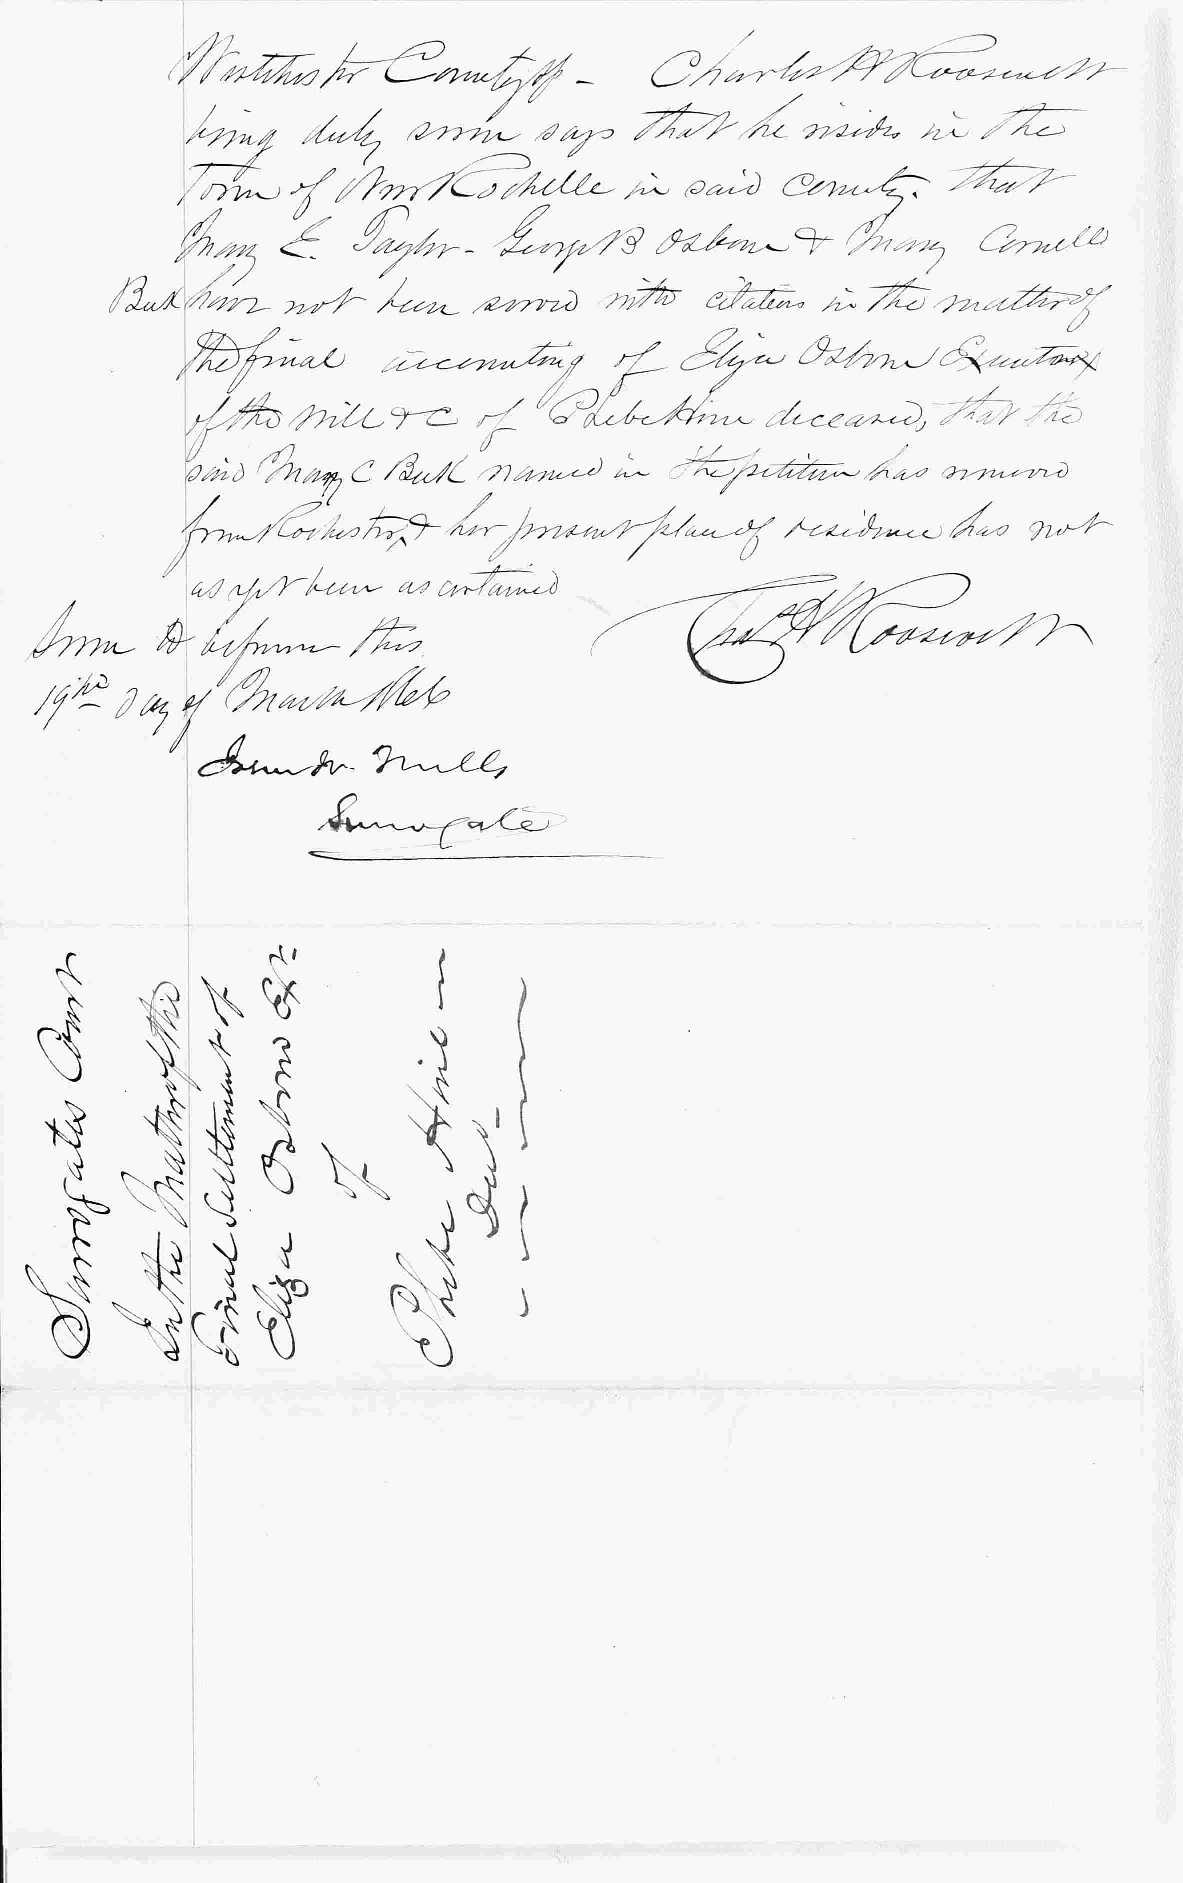 Westchester County ss - Charles H Roosevelt
being duly sworn says that he resides in the
Town of New Rochelle in said County. that
Mary E. Taylor - George B Osborn & Mary Cornell
Buck have not been served with citations in the matter of
the final accounting of Eliza Osborn Executrix
of the Will &C of Phebe Hine deceased, that the
said Mary C Buck named in the petition has removed
from Rochester, & her present place of residence has not
as yet been ascertained
Chas H Roosevelt
Sworn to before me this
19th Day of March
Mills
Surrogate
Surrogates Court
In the Matter of the
Final Settlement of
Eliza Osborn Exr.
of
Phebe Hine
Decd.